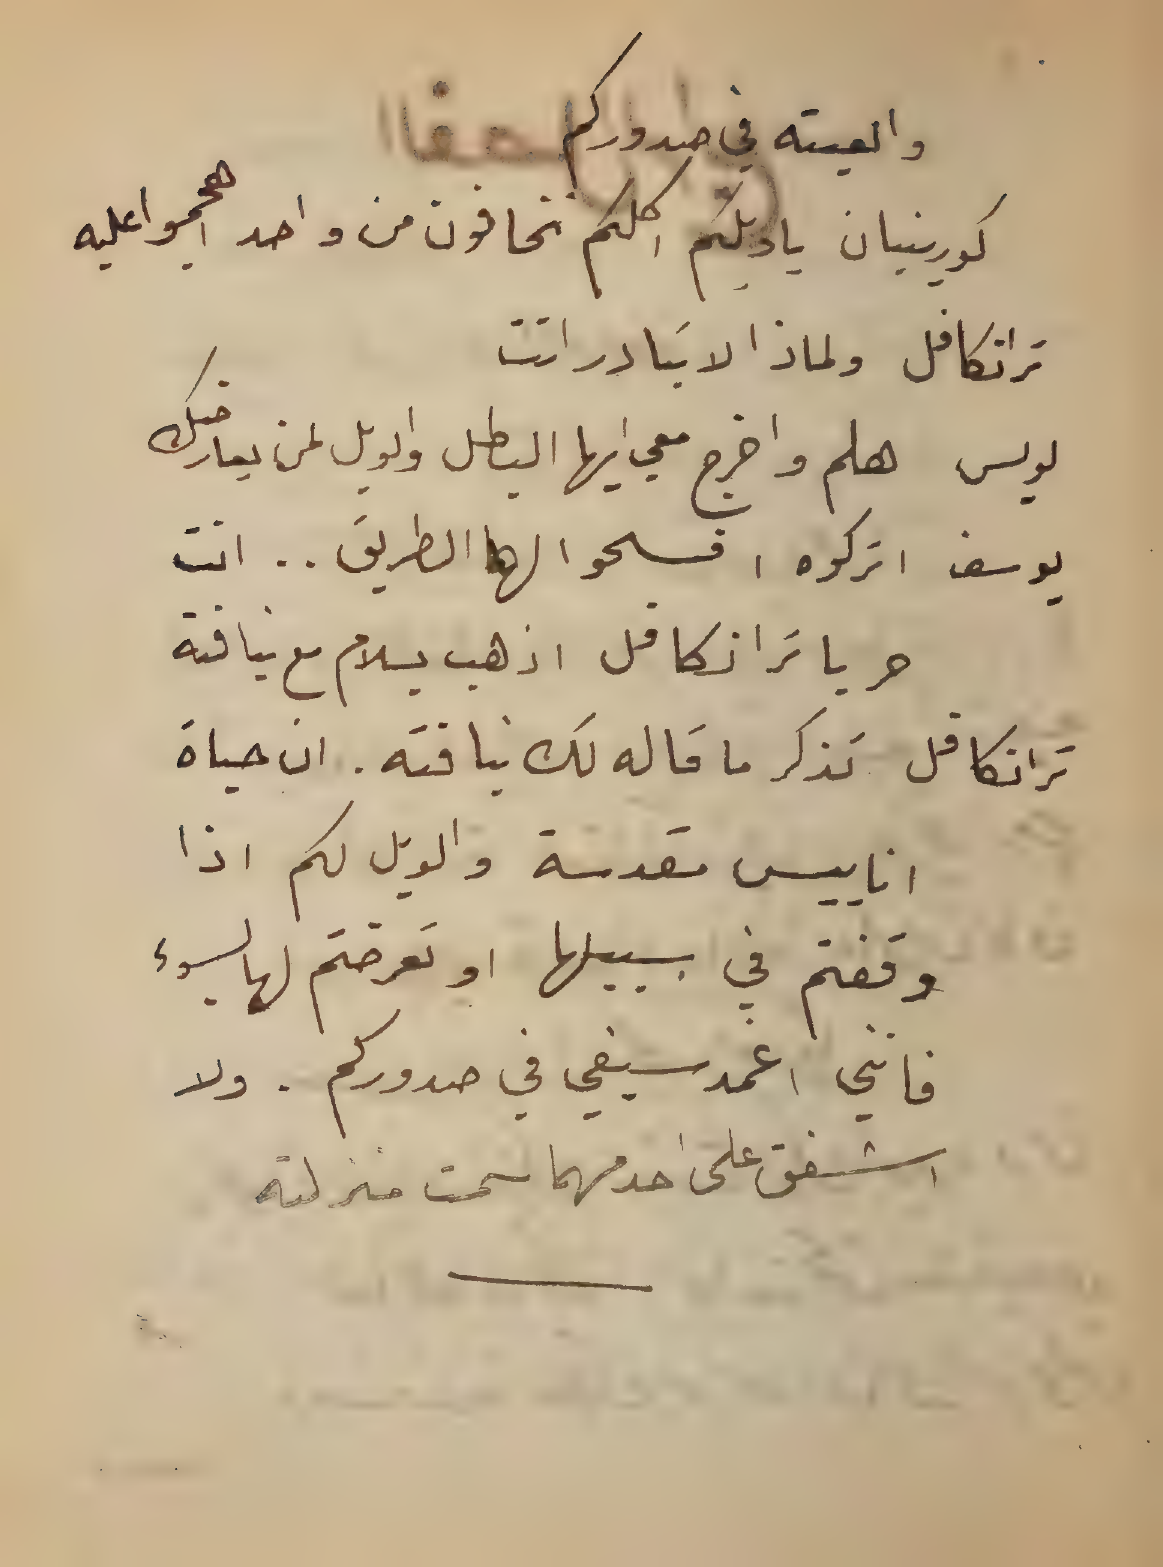 والعيته في صدوركم
كورينيان ياويلكم اكلكم تخافون من واحد اهجموا عليه
ترانكافل ولماذا لا تبادر انت
لويس هلم واخرج معي ايها البطل والويل لمن يعارضك
يوسف اتركوه افسحوا لهما الطريق .. انت
حر يا ترانكافل اذهب بسلام مع نيافته
ترانكافل تذكر ما قاله لك نيافته . ان حياة
اناييس مقدسة والويل لكم اذا
وقفتم في سبيلها او تعرضتم لها بسوء
فانني اغمد سيفي في صدوركم . ولا
اشفق على احد مهما سمت منزلته